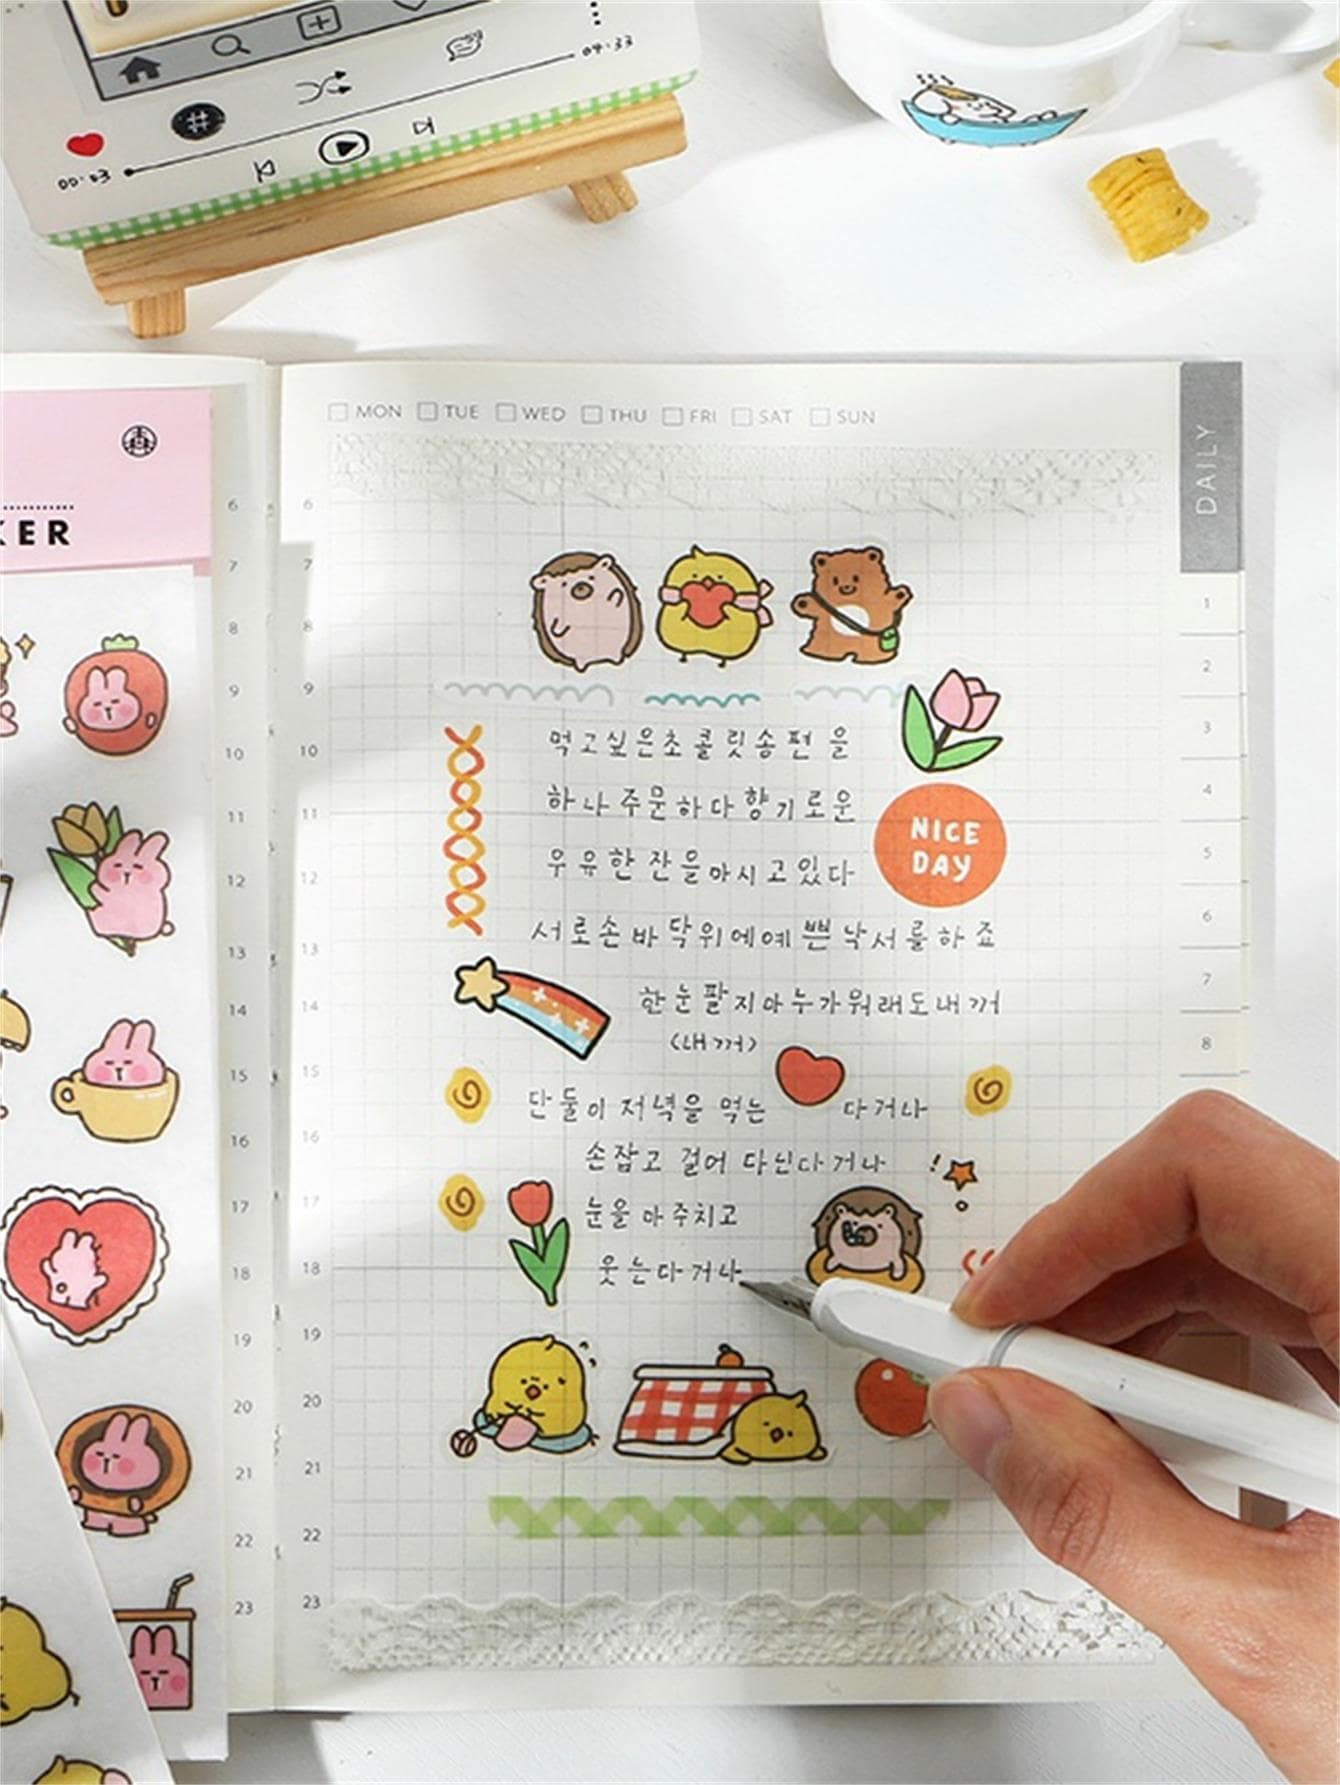 04:33
#
00:03
KER
MON TUE WED THU FRI SAT SUN
DAILY
6 7 8 9 10 11 12 13 14 15 16 17 18 19 20 21 22 23
6 7 8 9 10 11 12 13 14 15 16 17 18 19 20 21 22 23
1 2 3 4 5 6 7 8
먹고싶은초콜릿송편을
하나주문하다향기로운
NICE
DAY
우유한잔을마시고있다
서로손바닥위에예쁜낙서를하죠
한눈팔지마누가뭐래도내꺼
(내꺼)
단둘이저녁을 먹는 다거나
손잡고 걸어 다닌다거나
눈을 마주치고
웃는다거나